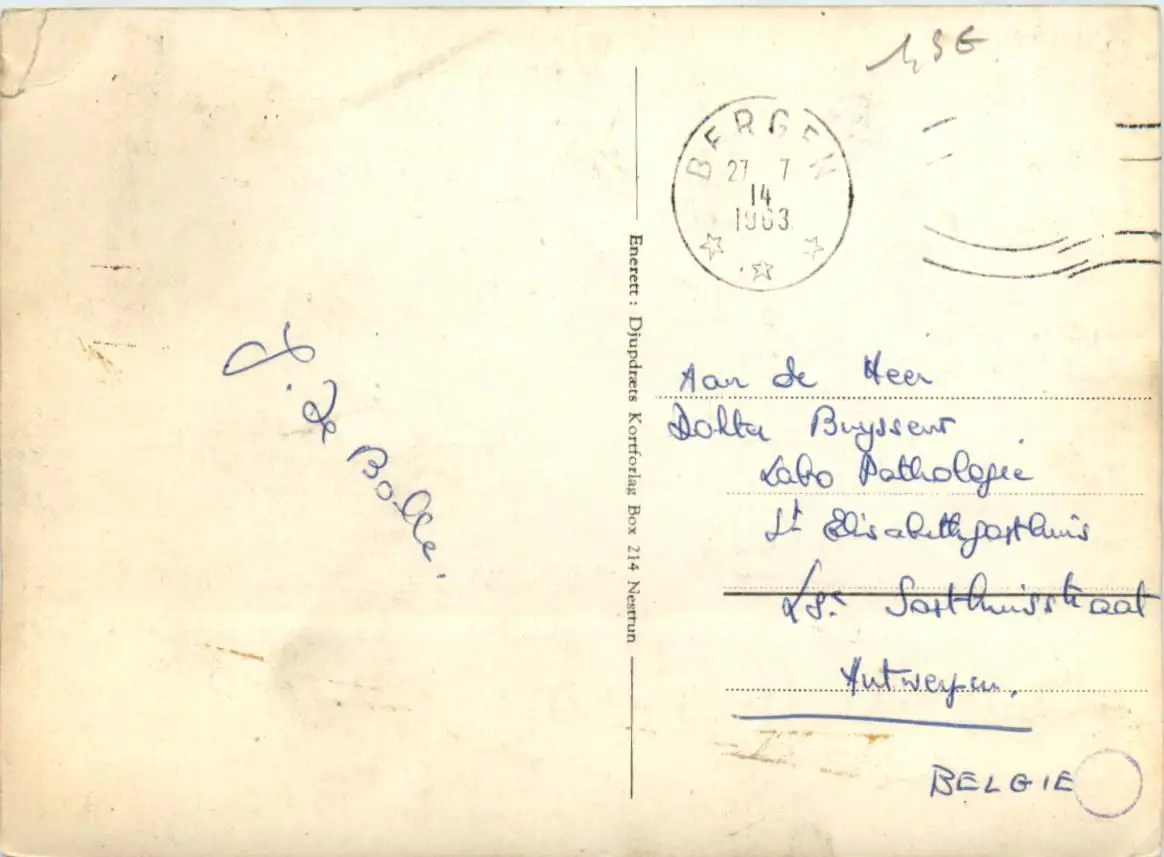 BERGEN
27 7
14
1963
J. De Bolle.
Enerett: Djupdræts Kortforlag Box 214 Nesttun
Aan de Heer
Dokter Buyssens
Labo Pathologie
St Elisabethgasthuis
Lge Gasthuisstraat
Antwerpen.
BELGIE